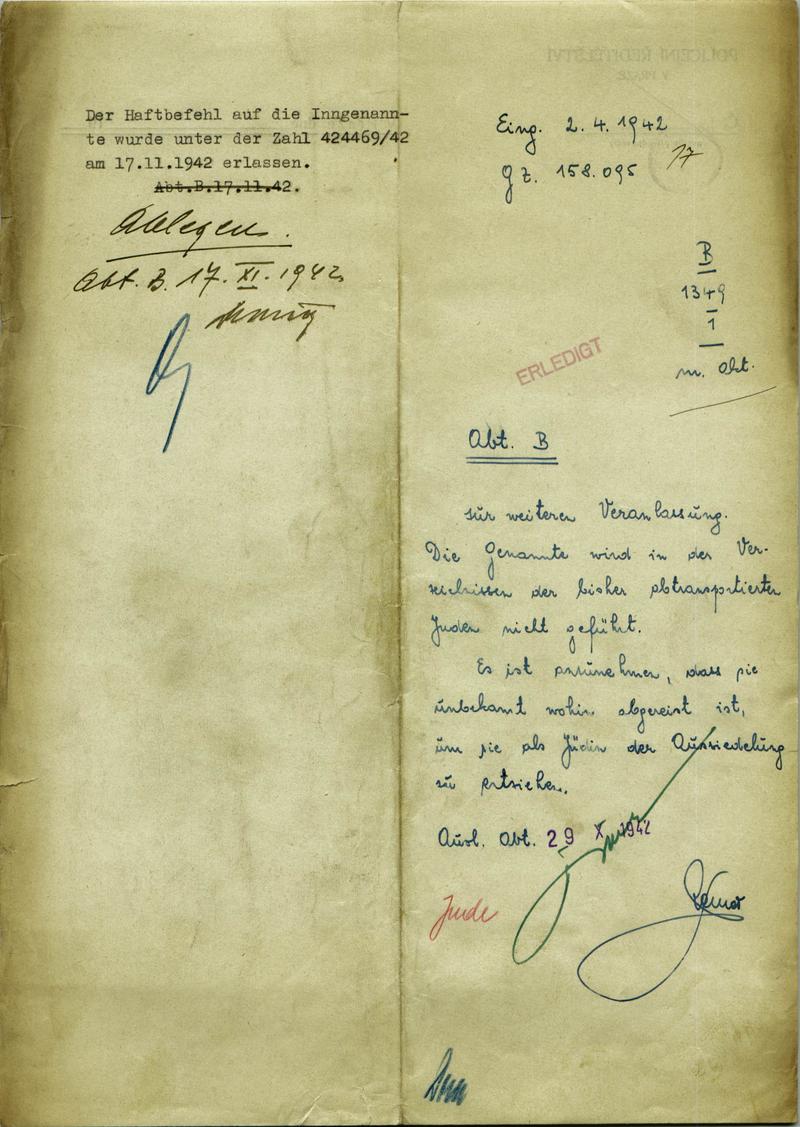 Der Haftbefehl auf die Inngenann-
te wurde unter der Zahl 424469/42
am 17.11.1942 erlassen.
Abt.B.17.11.42.
Ablegen.
Abt. B. 17. XI. 1942
POLICEJNÍ ŘEDITELSTVÍ
V PRAZE
Eing. 2.4.1942
17
gz. 158.095
B
1349
1
m. Abt.
ERLEDIGT
Abt. B
zur weiteren Veranlassung.
Die Genannte wird in den Ver-
zeichnissen der bisher abtransportierten
Juden nicht geführt.
Es ist anzunehmen, dass sie
unbekannt wohin abgereist ist,
um sie als Jüdin der Aussiedelung
zu entziehen.
Ausl. Abt. 29 X. 1942
Jude